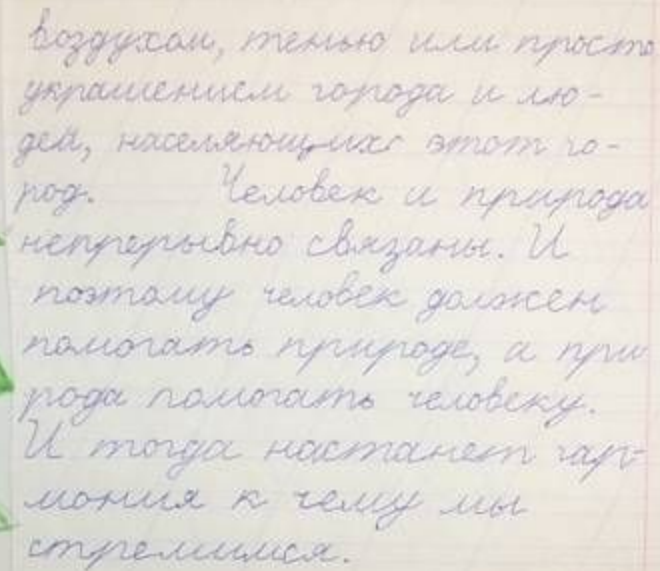 воздухом, тенью или просто
украшением города и лю-
дей, населяющих этот го-
род. Человек и природа
непрерывно связаны. И
поэтому человек должен
помогать природе, а при
рода помогать человеку.
И тогда настанет гар-
мония к чему мы
стремимся.